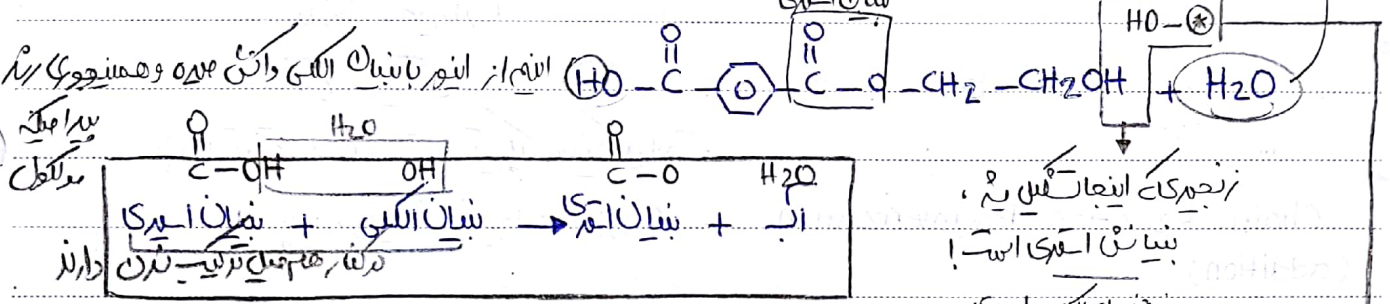 بنیان استری
HO-*
اینم از اینور با بنیان الکلی واکنش میده و همینجوری رشد
HO-C(=O)-[O]-C(=O)-O-CH2-CH2OH + H2O
پیدا میکنه
مولکول
H2O
C(=O)-OH OH C(=O)-O H2O
بنیان اسیدی + بنیان الکلی → بنیان استری + آب
در کنار هم میل ترکیب شدن دارند
زنجیری که اینجا تشکیل شد،
بنیانش استری است!